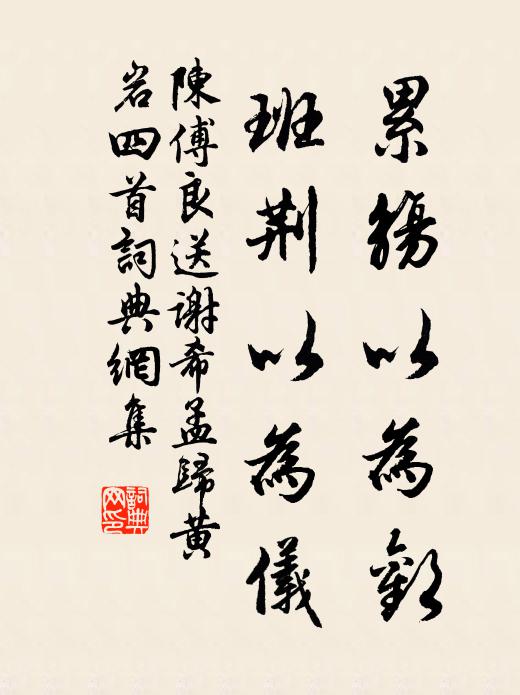 累觴以為歡
班荊以為儀
陳傅良送謝希孟歸黃
岩四首詞典網集
詞典
网印